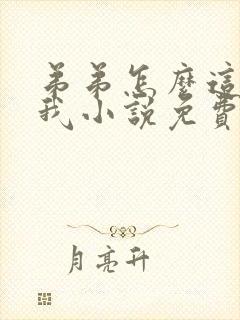 弟弟怎麼這
我小說免費
月亮升